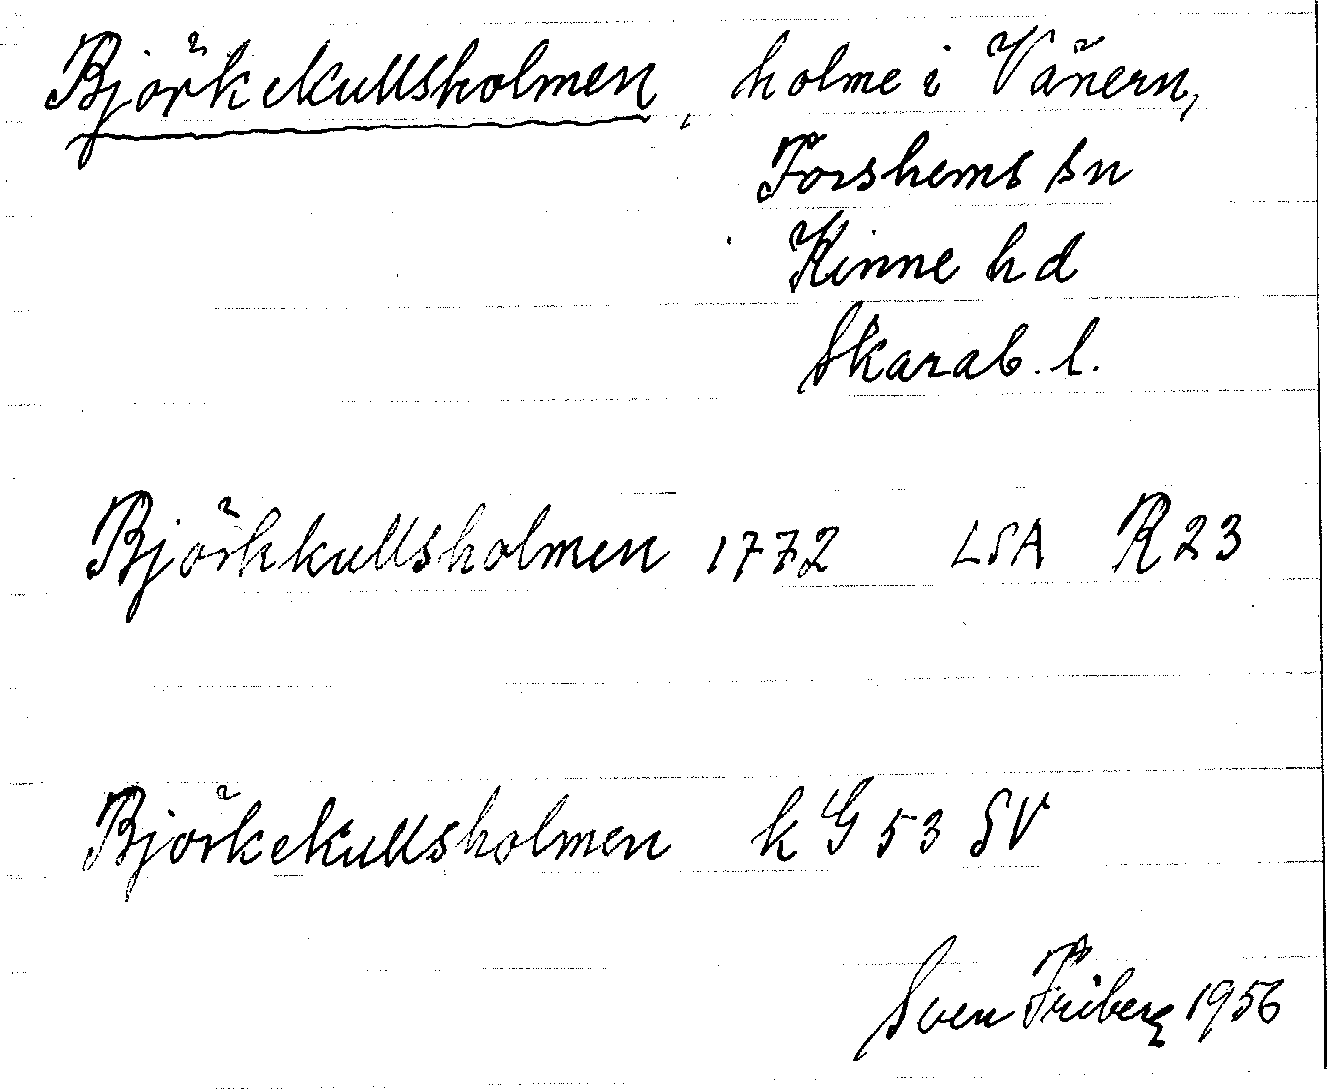 Björkekullsholmen, holme i Vänern,
Forshems sn
Kinne hd
Skarab. l.
Björkkullsholmen 1772 LSA R23
Björkekullsholmen k G 53 SV
Sven Friberg 1956